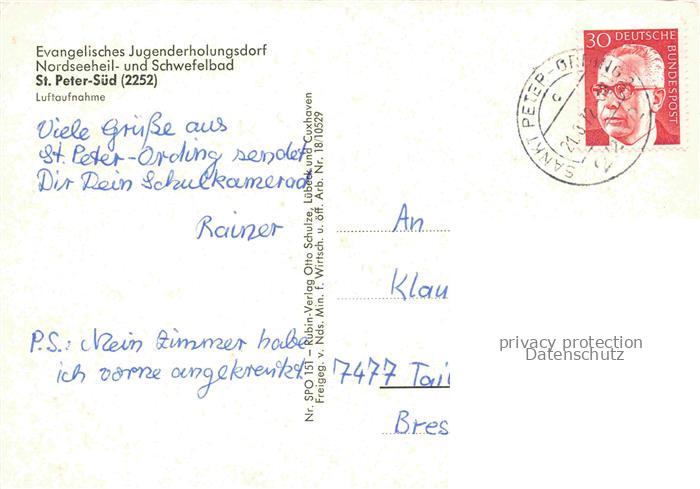 Evangelisches Jugenderholungsdorf
Nordseeheil- und Schwefelbad
St. Peter-Süd (2252)
Luftaufnahme
Viele Grüße aus
St. Peter-Ording sendet
Dir Dein Schulkamerad
Rainer
P.S.: Mein Zimmer habe
ich vorne angekreutzt.
Nr. SPO 151 – Rubin-Verlag Otto Schulze, Lübeck und Cuxhaven
Freigeg. v. Nds. Min. f. Wirtsch. u. öff. Arb. Nr. 18/10529
30 DEUTSCHE
BUNDESPOST
SANKT PETER-ORDING
c
An
Klau
7477 Tail
Bres
privacy protection
Datenschutz